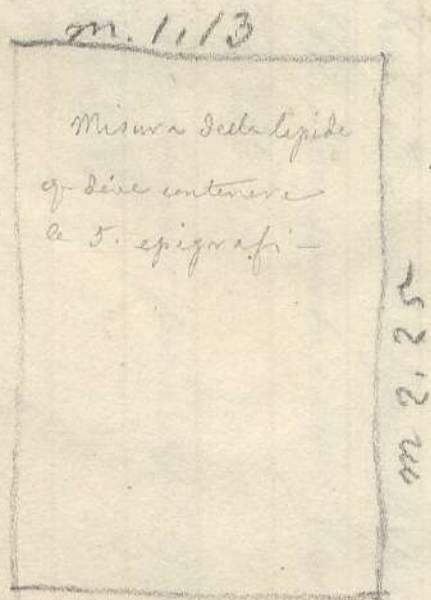 m. 1,13
Misura della lapide
che deve contenere
le 5. epigrafi –
m 2,25